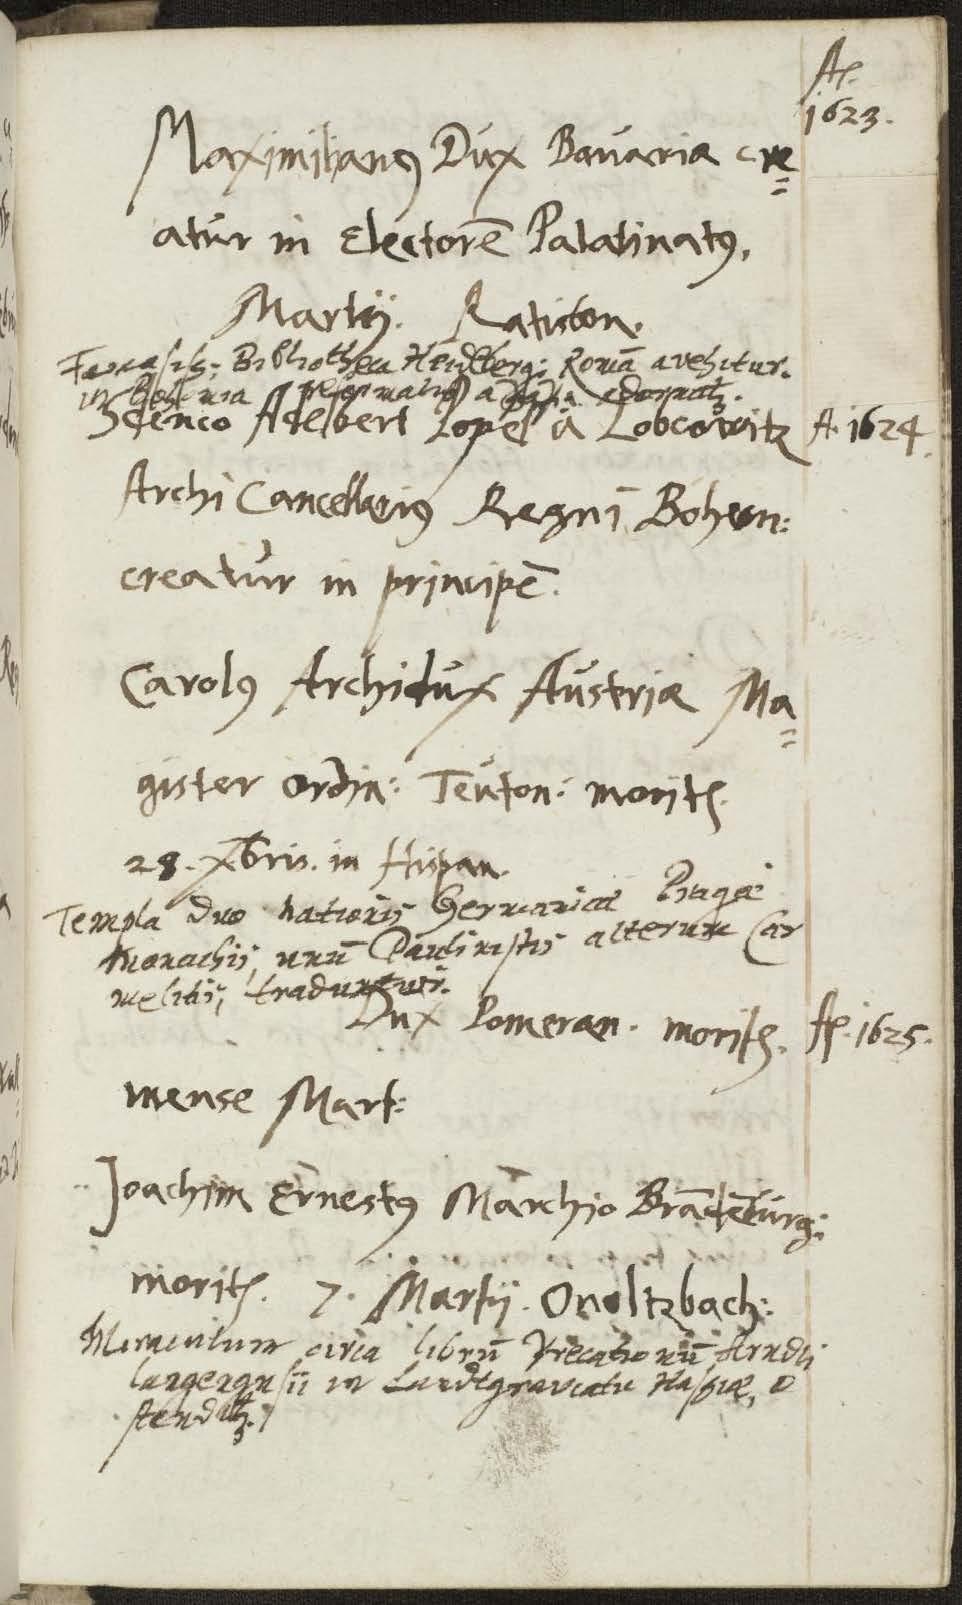 Aº.
1623.
Maximilianus Dux Bavariæ cre=
atur in Electorē Palatinatus,
Martij. Ratisbon.
Bibliotheca Heidelberg: Romā avehitur.
in Bohemia reformatio a
Sdenco Adelbert Popel à Lobcowitz A. 1624.
Archi Cancellarius Regni Bohem:
creatur in principē.
Carolus Archidux Austriæ Ma=
gister Ordin: Teuton: morit.
28. Xbris. in Hispan.
Templa duo nationis Germanicæ Pragæ
Monachis, unū Paulinistis alterum Car
melitis, traduntur.
Dux Pomeran. morit. Aº. 1625.
mense Mart:
Joachim Ernestus Marchio Brādēburg:
morit. 7. Martij. Onoltzbach:
Miraculum circa librū Precationū Arndij
Langengnsii in Landtgraviatu Hassiæ, o
stendit.